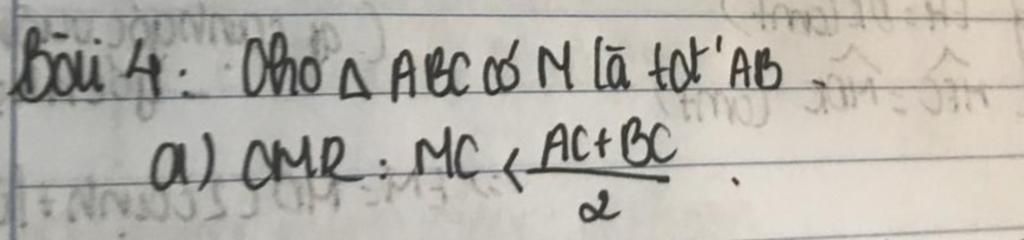 Bài 4: Cho △ ABC có M là tđt' AB.
a) CMR: MC < \frac{AC+BC}{2}.